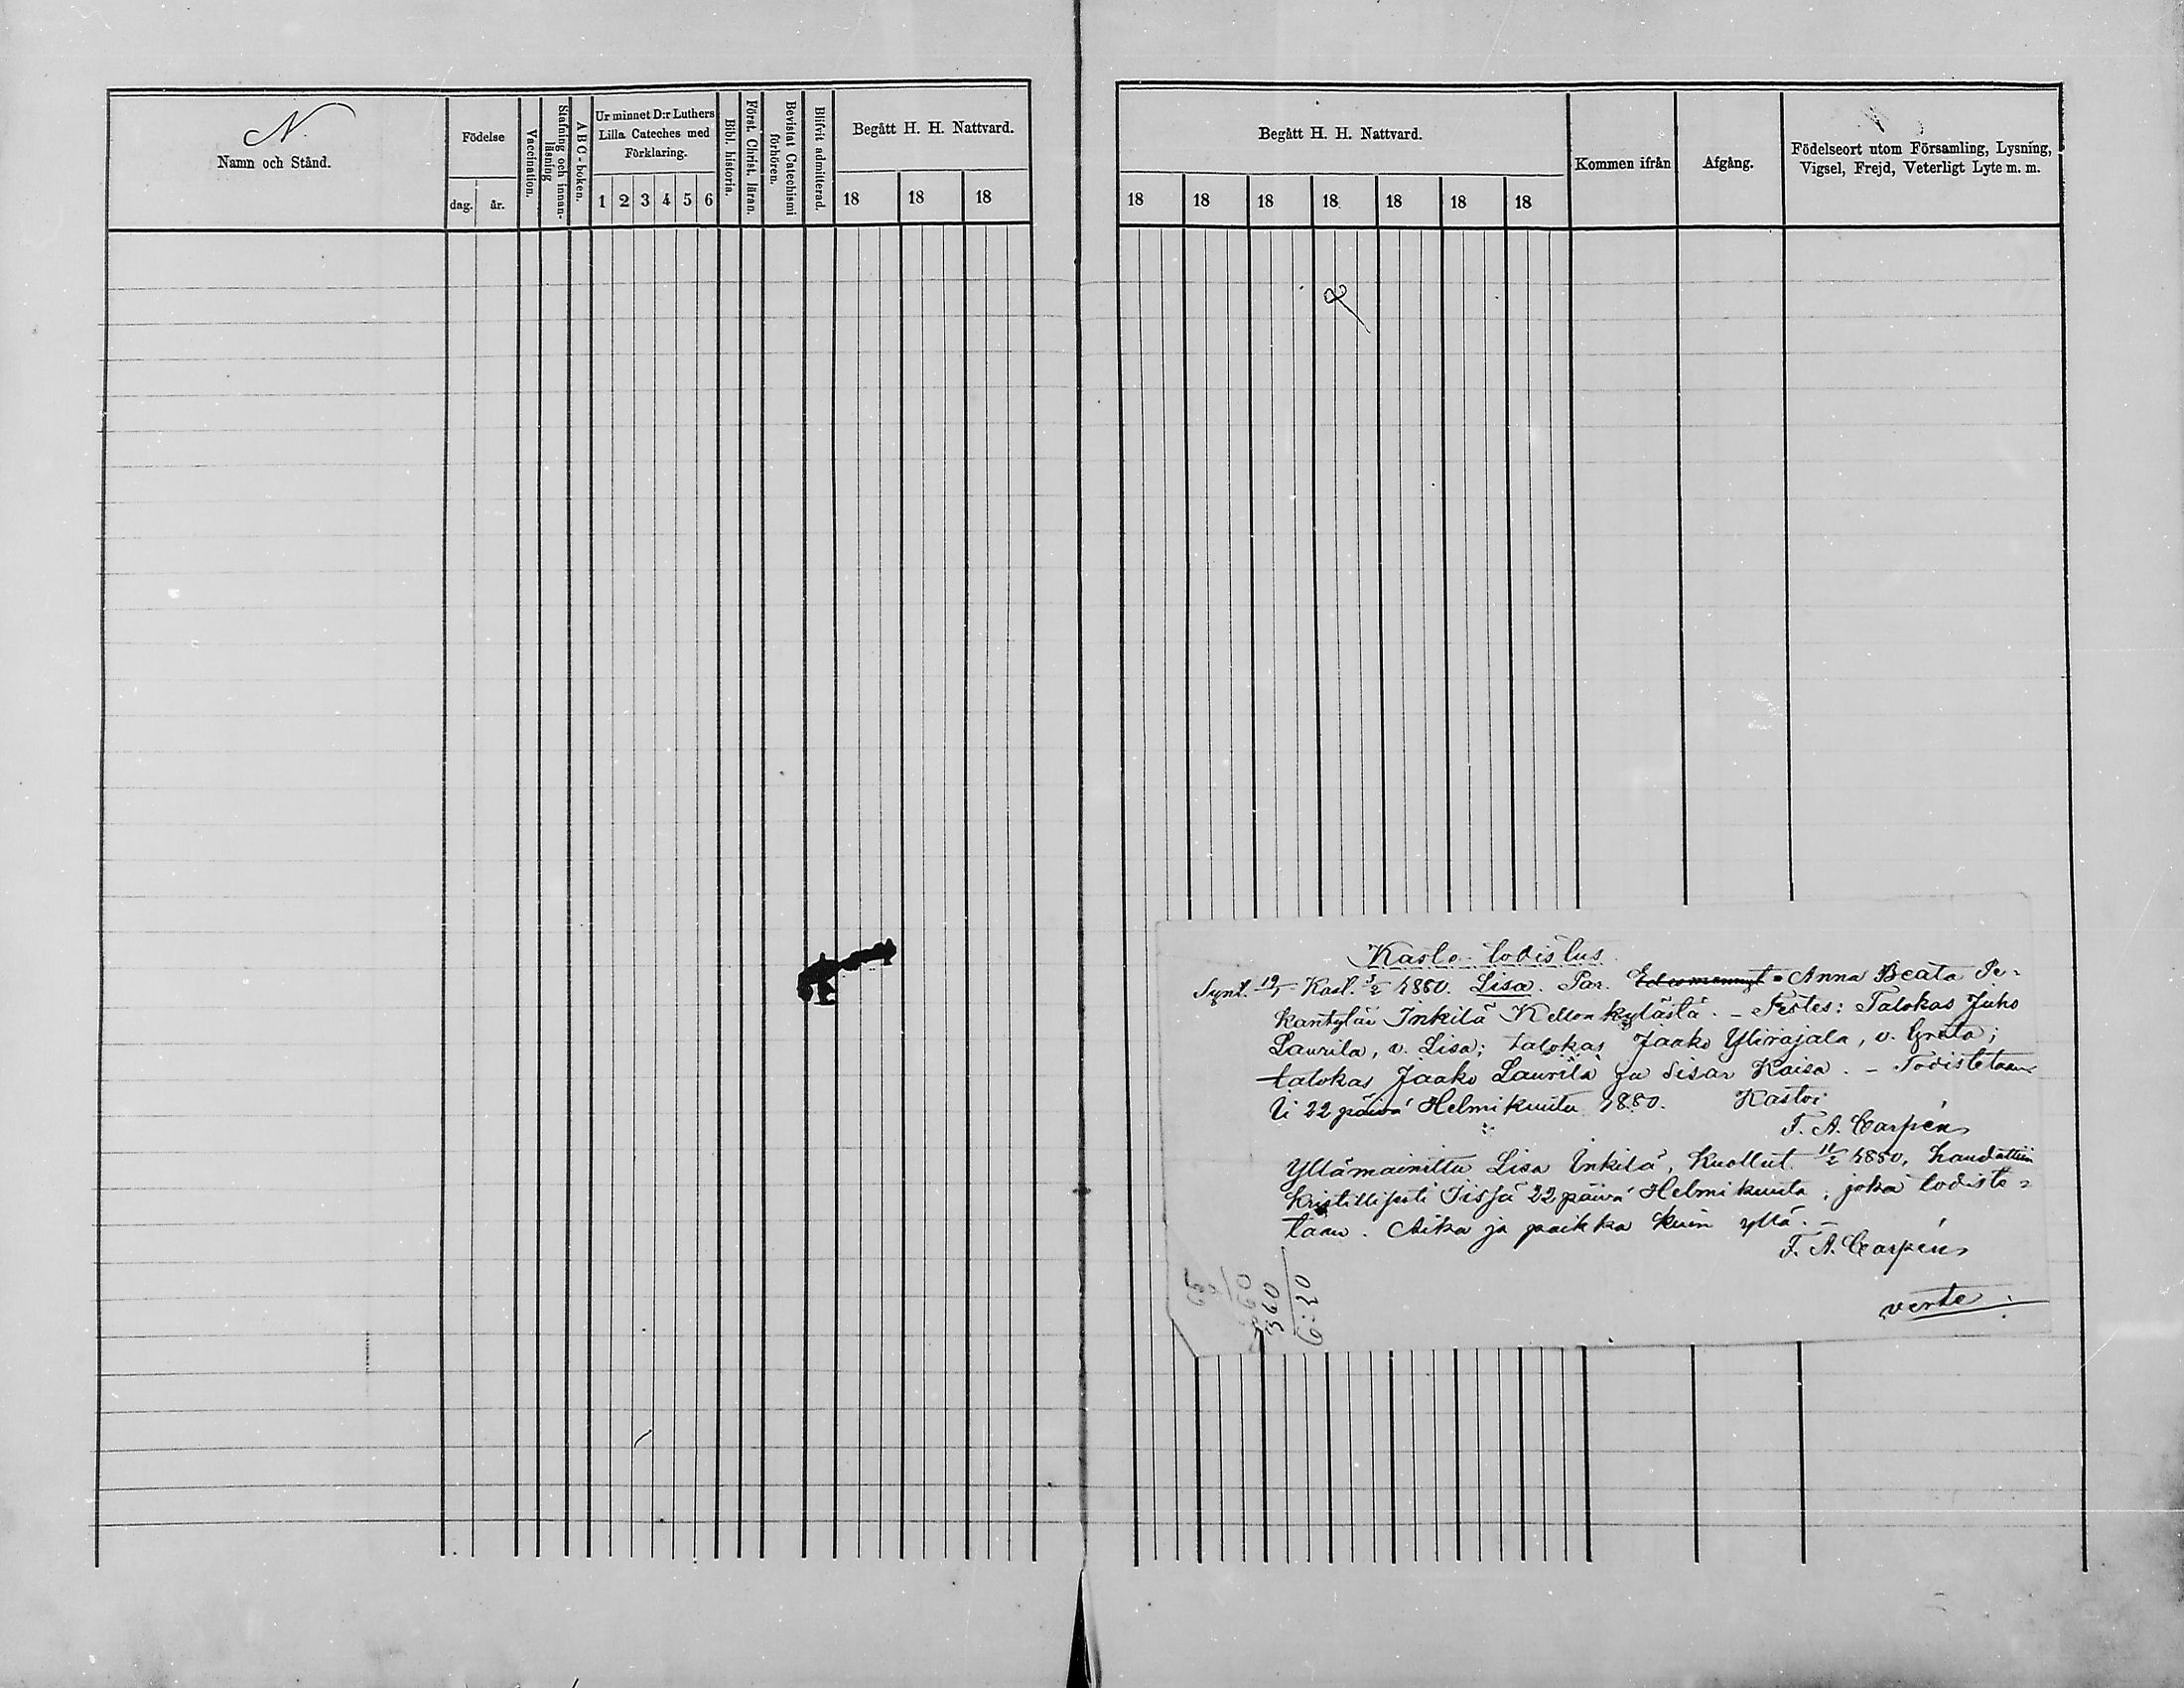 N.
Namn och Stånd.
Födelse
dag. år.
Vaccination.
Stafning och innan-
läsning
ABC-boken.
Ur minnet D:r Luthers
Lilla Cateches med
Förklaring.
1 2 3 4 5 6
Bibl. historia.
Först. Christ. läran.
Bevistat Catechismi
förhören.
Blifvit admitterad.
Begått H. H. Nattvard.
18 18 18
Begått H. H. Nattvard.
18 18 18 18 18 18 18
Kommen ifrån
Afgång.
Födelseort utom Församling, Lysning,
Vigsel, Frejd, Veterligt Lyte m. m.
Kaste-todistus
Synt. 19/1 Kast. 1880. Lisa. Par. Anna Beata Pe-
kantytär Inkilä Kellon kylästä. – Testes: Talokas Juho
Laurila, v. Lisa; talokas Jaako Ylirajala, v. Greta;
talokas Jaako Laurila ja sisar Kaisa. – Todistetaan
Ii 22 päivä Helmikuuta 1880. Kastoi
F. A. Carpén
Yllämainittu Lisa Inkilä, Kuollut 11/2 1880, haudattiin
Kristillisesti Iissä 22 päivä Helmikuuta, joka todiste-
taan. Aika ja paikka kuin yllä. –
F. A. Carpén
verte.
6:20
360